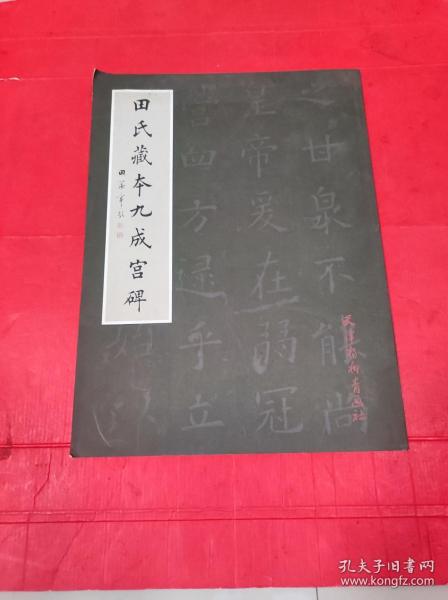 田氏藏本九成宫碑
田蕴章题
之甘泉不能尚
皇帝爰在弱冠
营四方逮乎立
天津杨柳青画社
孔夫子旧书网
www.kongfz.com